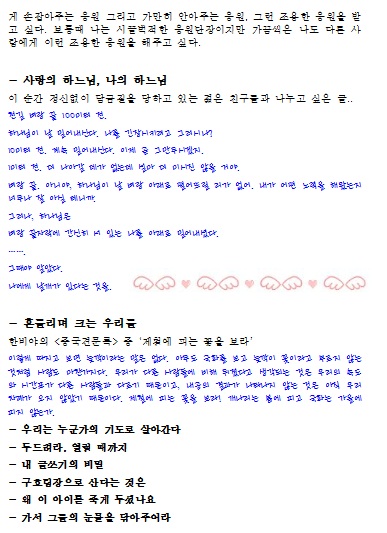 게 손잡아주는 응원 그리고 가만히 안아주는 응원, 그런 조용한 응원을 받
고 싶다. 보통때 나는 시끌벅적한 응원단장이지만 가끔씩은 나도 다른 사
람에게 이런 조용한 응원을 해주고 싶다.
- 사랑의 하느님, 나의 하느님
이 순간 정신없이 담금질을 당하고 있는 젊은 친구들과 나누고 싶은 글..
천길 벼랑 끝 100미터 전.
하나님이 날 밀어내신다. 나를 긴장시키려고 그러시나?
10미터 전. 계속 밀어내신다. 이제 곧 그만두시겠지.
1미터 전. 더 나아갈 데가 없는데 설마 더 미시진 않을 거야.
벼랑 끝. 아니야, 하나님이 날 벼랑 아래로 떨어뜨릴 리가 없어. 내가 어떤 노력을 해왔는지
너무나 잘 아실 테니까.
그러나, 하나님은
벼랑 끝자락에 간신히 서 있는 나를 아래로 밀어내셨다.
…….
그때야 알았다.
나에게 날개가 있다는 것을.
- 흔들리며 크는 우리들
한비야의 <중국견문록> 중 '제철에 피는 꽃을 보라'
이렇게 따지고 보면 늦깎이라는 말은 없다. 아무도 국화를 보고 늦깎이 꽃이라고 부르지 않는
것처럼 사람도 마찬가지다. 우리가 다른 사람들에 비해 뒤졌다고 생각되는 것은 우리의 속도
와 시간표가 다른 사람들과 다르기 때문이고, 내공의 결과가 나타나지 않는 것은 아직 우리
차례가 오지 않았기 때문이다. 제철에 피는 꽃을 보라! 개나리는 봄에 피고 국화는 가을에
피지 않는가.
- 우리는 누군가의 기도로 살아간다
- 두드려라, 열릴 때까지
- 내 글쓰기의 비밀
- 구호팀장으로 산다는 것은
- 왜 이 아이를 죽게 두셨나요
- 가서 그들의 눈물을 닦아주어라